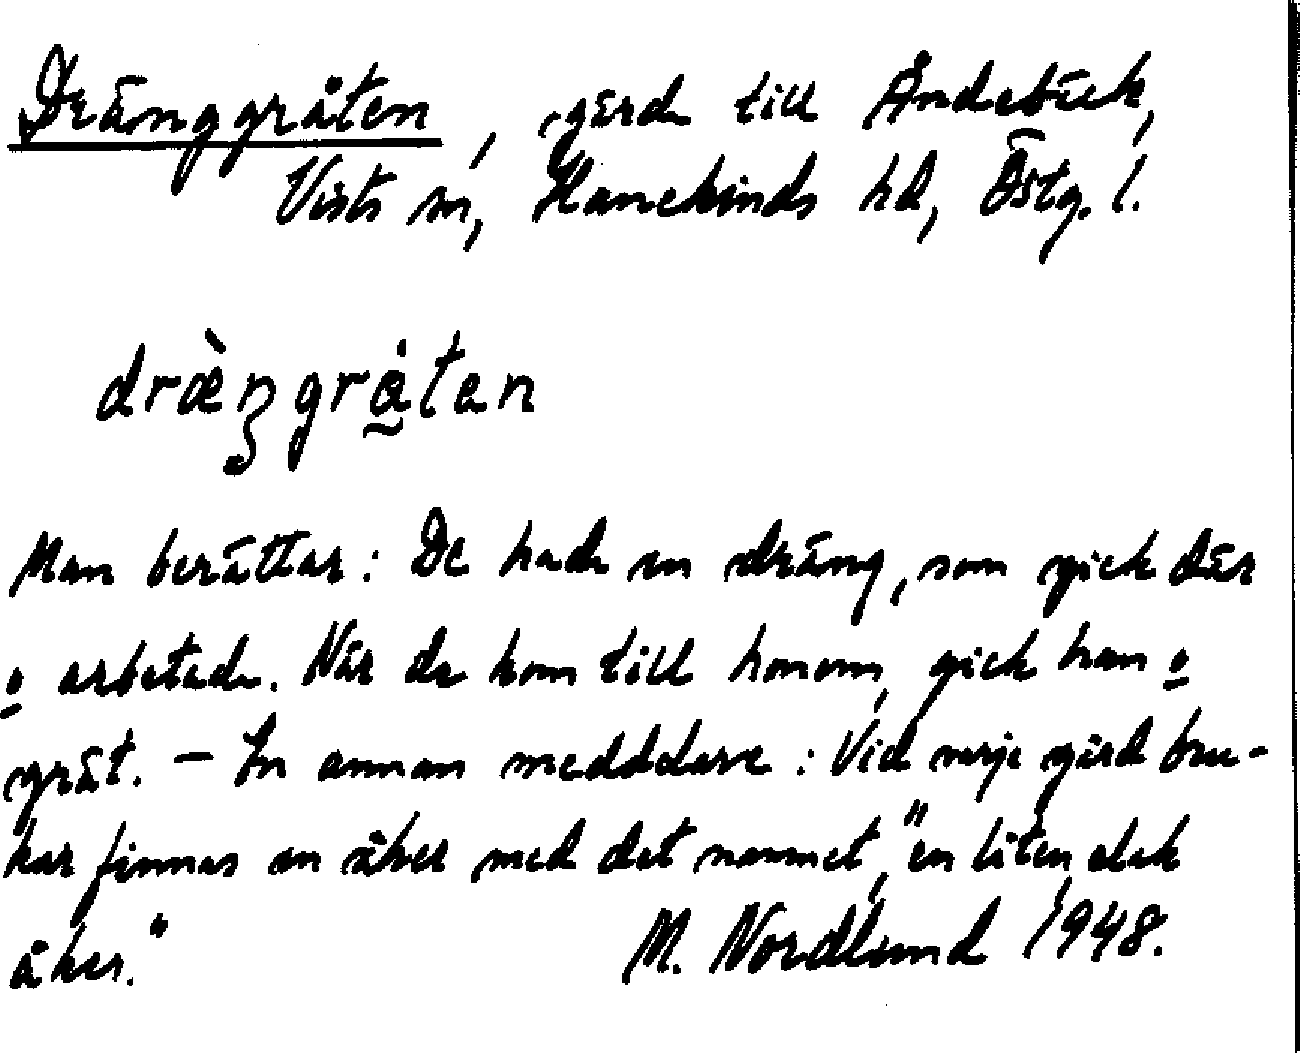 Dränggråten, gärde till Åndebäck,
Vists sn, Hanekinds hd, Östg. l.
dræ̀ŋgrå̀ten
Man berättar: De hade en dräng, som gick där
o arbetade. När de kom till honom, gick han o
grät. – En annan meddelare: Vid varje gård bru-
kar finnas en åker med det namnet, "en liten, elak
åker."
M. Nordlund 1948.